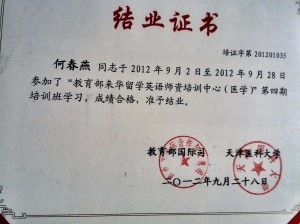 结业证书
培证字第201201035
何春燕 同志于2012年9月2日至2012年9月28日
参加了“教育部来华留学英语师资培训中心(医学)”第四期
培训班学习，成绩合格，准予结业。
教育部国际司 天津医科大学
二〇一二年九月二十八日